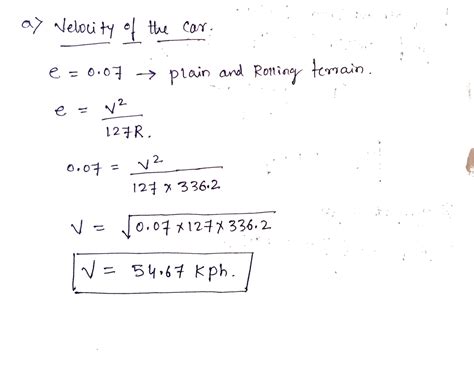 a) Velocity of the car.
e = 0.07 → plain and Rolling terrain.
e = V² / 127R.
0.07 = V² / 127 × 336.2
V = √0.07 × 127 × 336.2
V = 54.67 kph.